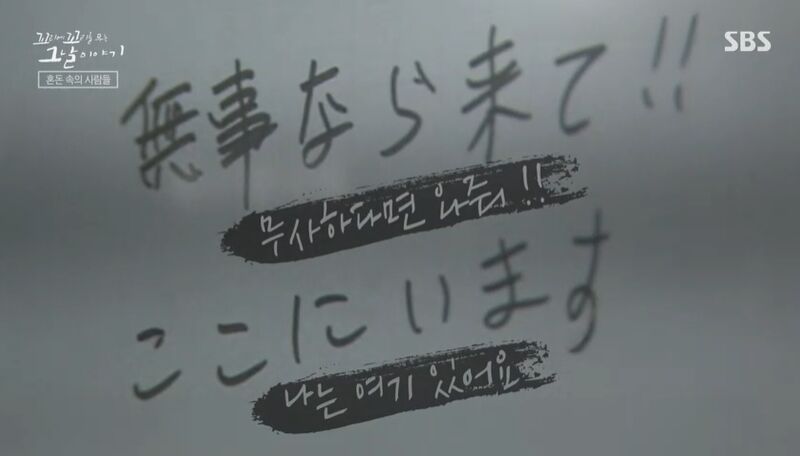 꼬리에 꼬리를 무는
그날 이야기
혼돈 속의 사람들
SBS
無事なら来て!!
무사하다면 와줘!!
ここにいます
나는 여기 있어요